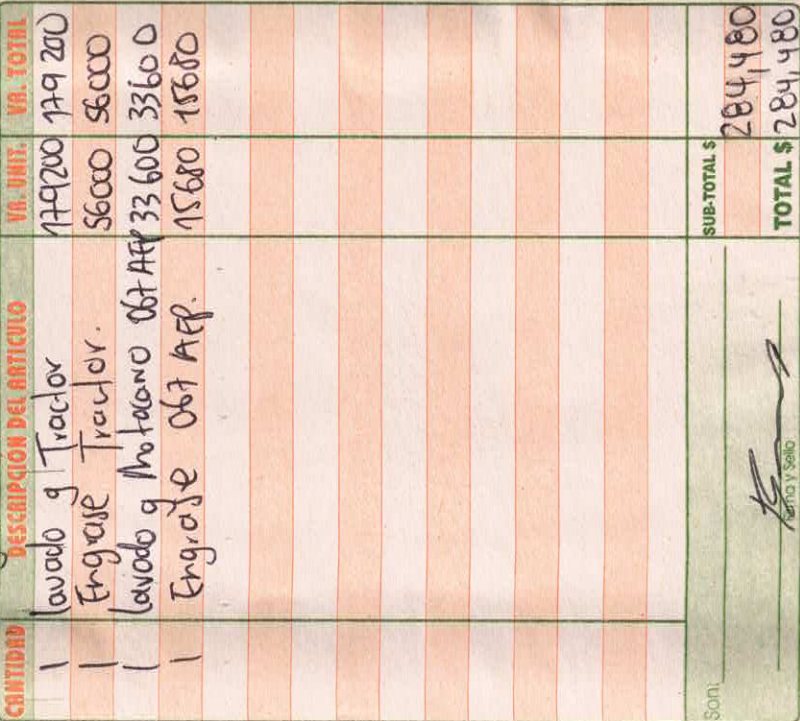 CANTIDAD DESCRIPCION DEL ARTICULO VR. UNIT. VR. TOTAL
1 lavado g Tractor 179200 179 200
1 Engrase Tractor. 56000 56000
1 lavado g Motocano 067 AFP 33 600 33600
1 Engrase 067 AFP. 15680 15680
Son:
SUB-TOTAL $ 284,480
Firma y Sello
TOTAL $ 284,480